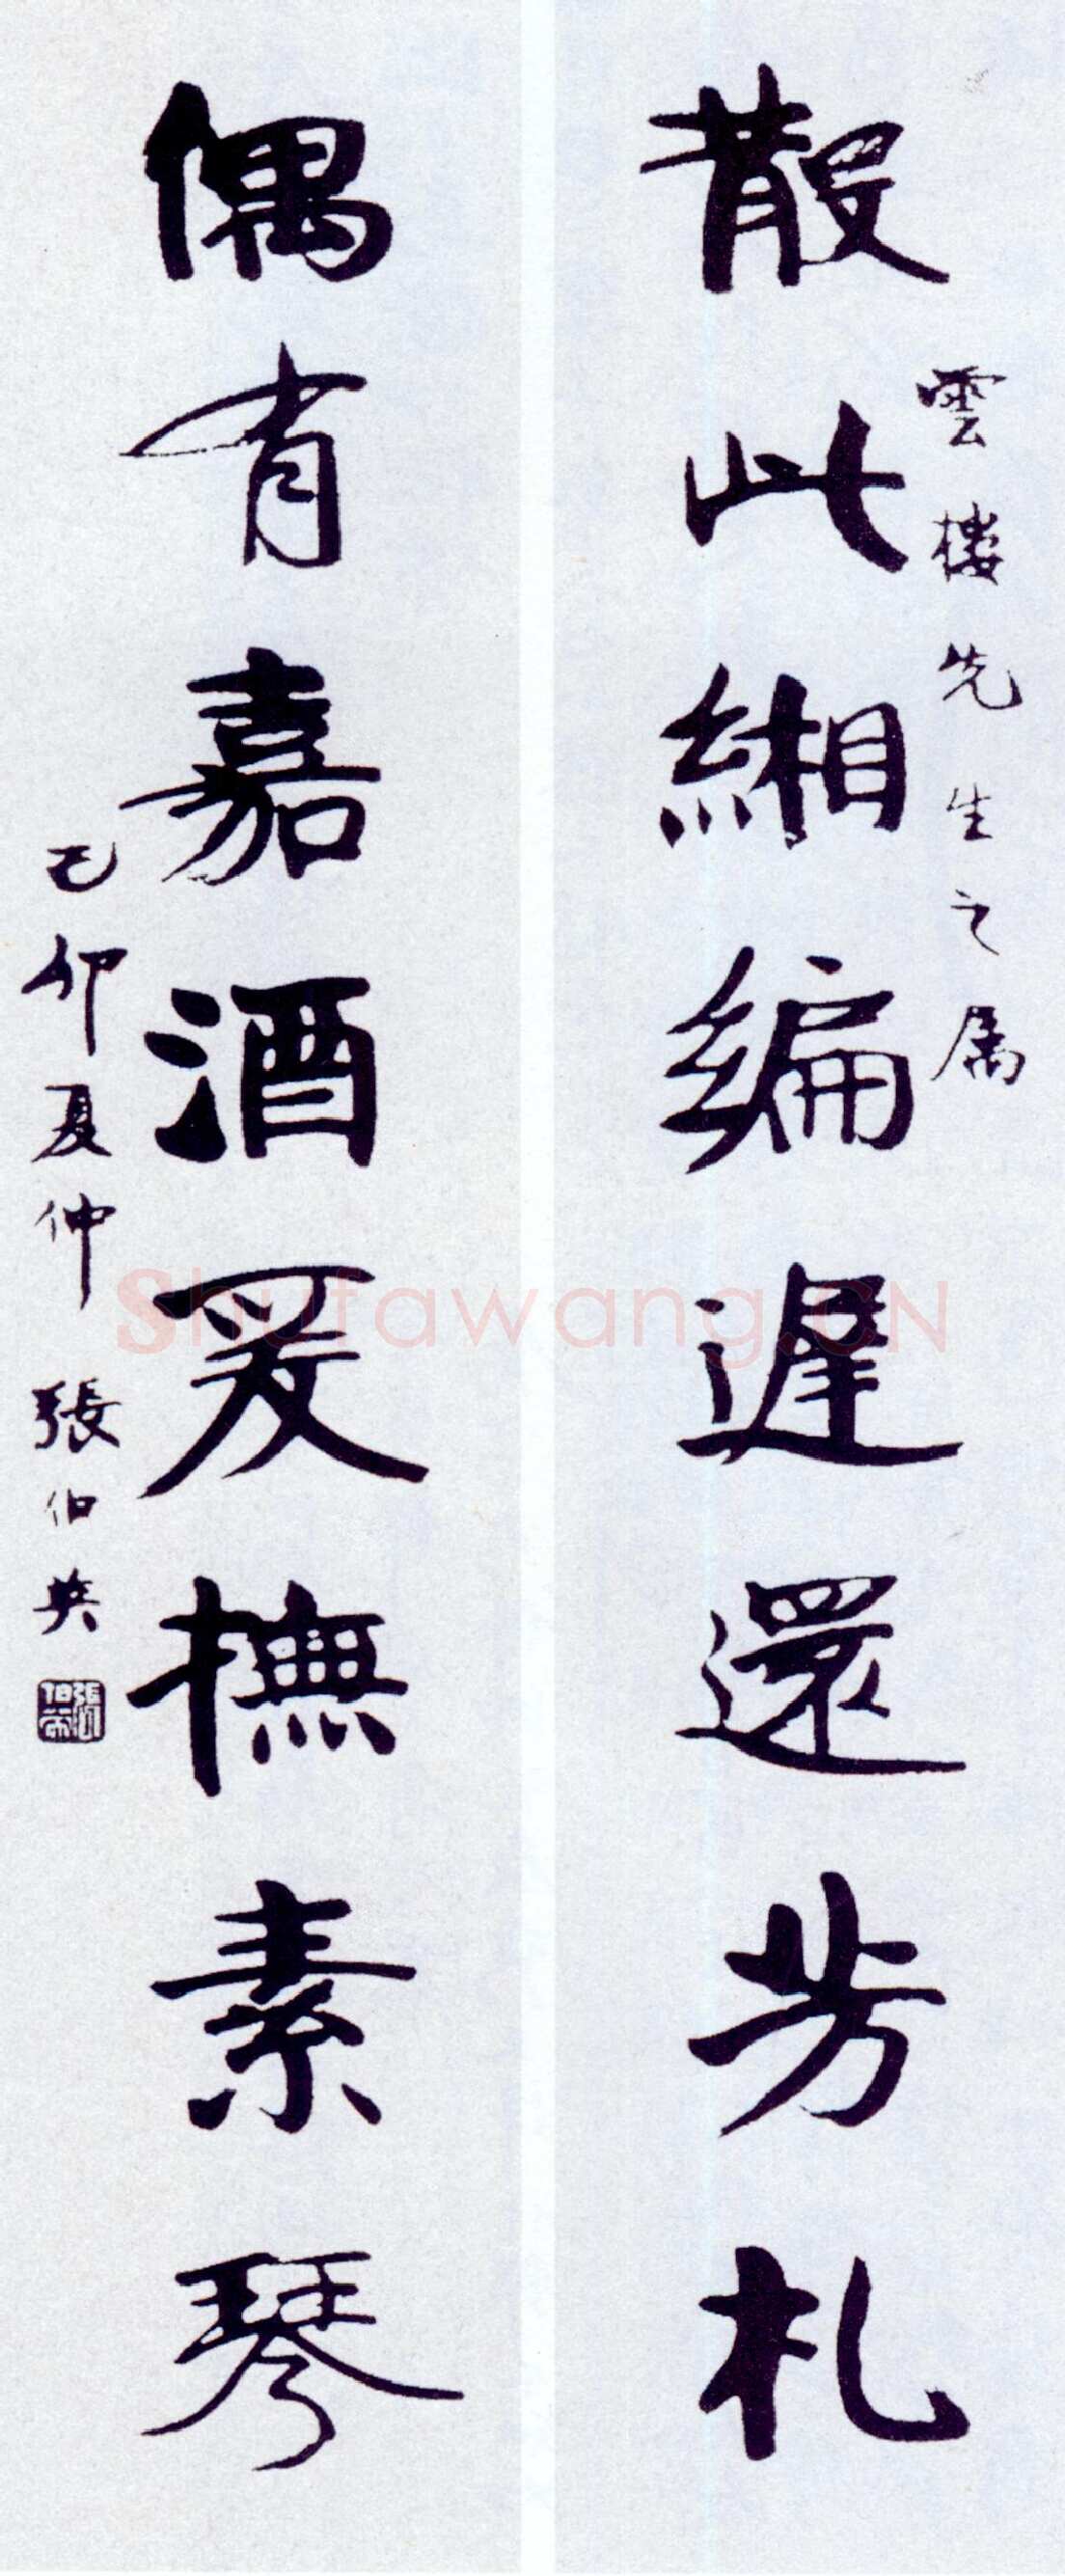 雲樓先生之属
散此緗編遲還芳札
偶有嘉酒爰撫素琴
己卯夏仲 張伯英
張伯英
Shufawang.CN